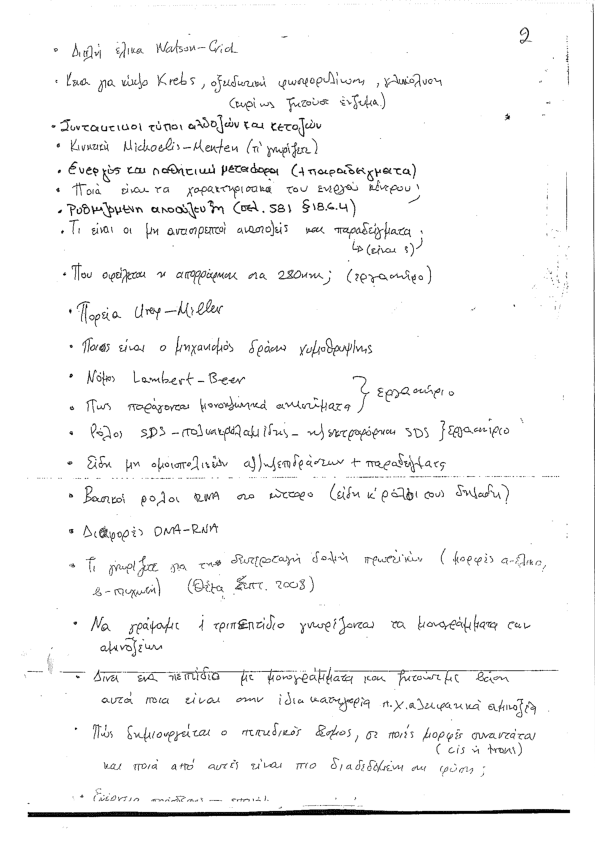 2
• Διπλή έλικα Watson-Crick
• Κάτι για κύκλο Krebs, οξειδωτική φωσφορυλίωση, γλυκόλυση
(κυρίως ζητούσε ένζυμα)
• Συντακτικοί τύποι αλδοζών και κετοζών
• Κινητική Michaelis-Menten (τι γνωρίζετε)
• Ενεργός και παθητική μεταφορά (+παραδείγματα)
• Ποιά είναι τα χαρακτηριστικά του ενεργού κέντρου;
• Ρυθμιζόμενη αποσύζευξη (σελ. 581 §18.6.4)
• Τι είναι οι μη αντιστρεπτοί αναστολείς και παραδείγματα;
↳ (είναι 3)
• Που οφείλεται η απορρόφηση στα 280nm; (εργαστήριο)
• Πορεία Urey-Miller
• Ποιος είναι ο μηχανισμός δράσης χυμοθρυψίνης
• Νόμος Lambert-Beer
• Πως παράγονται μονοκλωνικά αντισώματα } εργαστήριο
• Ρόλος SDS - πολυακρυλαμίδης - ηλεκτροφόρηση SDS } εργαστήριο
• Είδη μη ομοιοπολικών αλληλεπιδράσεων + παραδείγματα
• Βασικοί ρόλοι RNA στο κύτταρο (είδη κ' ρόλοι τους δηλαδή)
• Διαφορές DNA-RNA
• Τι γνωρίζετε για την δευτεροταγή δομή πρωτεϊνών (μορφές α-έλικα,
β-πτυχωτή) (Θέμα Σεπτ. 2008)
• Να γράψουμε 1 τριπεπτίδιο γνωρίζοντας τα μονογράμματα των
αμινοξέων
• Δίνει ένα πεπτίδιο με μονογράμματα και ζητούσε με βάση
αυτά ποια είναι στην ίδια κατηγορία π.χ. αλειφατικά αμινοξέα
• Πώς δημιουργείται ο πεπτιδικός δεσμός, σε ποιές μορφές συναντάται
(cis ή trans)
και ποιά από αυτές είναι πιο διαδεδομένη στη φύση;